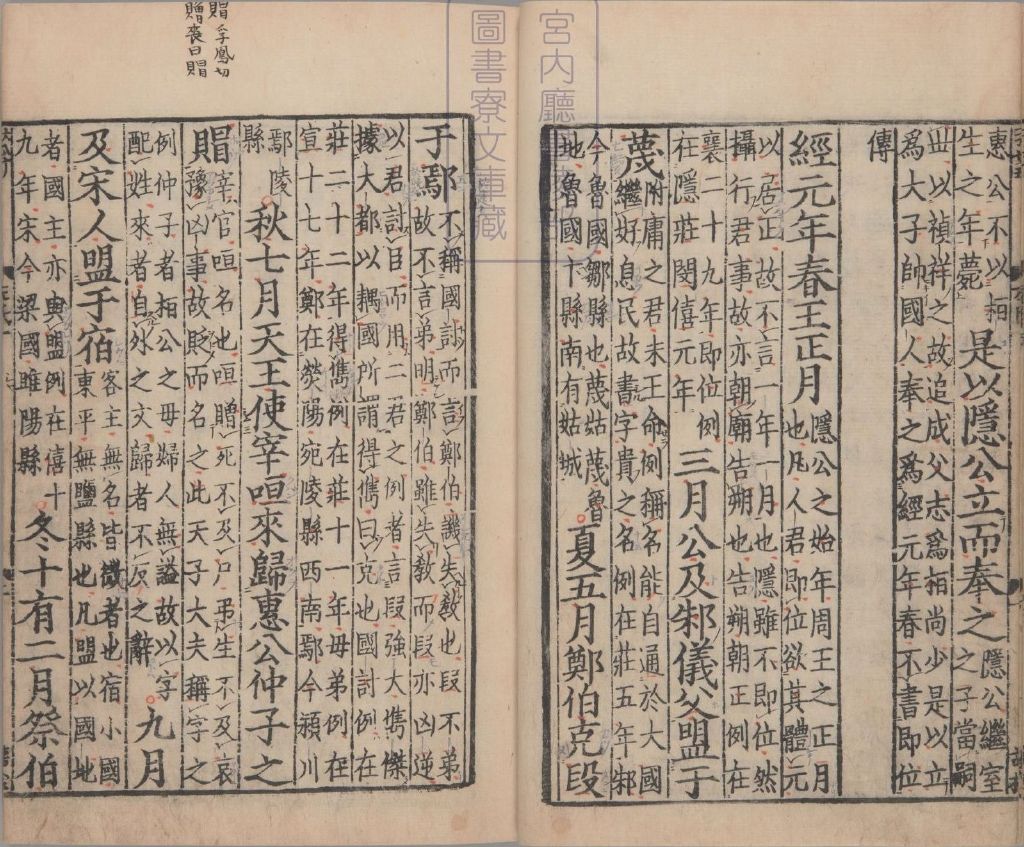 宮內廳
圖書寮文庫藏
惠公不以桓
生之年薨
是以隱公立而奉之
隱公繼室
之子當嗣
世以禎祥之故追成父志爲桓尚少是以立
爲大子帥國人奉之爲經元年春不書即位
傳
經元年春王正月
隱公之始年周王之正月
也凡人君即位欲其體元
以居正故不言一年一月也隱雖不即位然
攝行君事故亦朝廟告朔也告朔朝正例在
襄二十九年即位例
在隱莊閔僖元年
三月公及邾儀父盟于
蔑
附庸之君未王命例稱名能自通於大國
繼好息民故書字貴之名例在莊五年邾
今魯國鄒縣也蔑姑蔑魯
地魯國卞縣南有姑城
夏五月鄭伯克段
于鄢
不稱國討而言鄭伯譏失教也段不弟
故不言弟明鄭伯雖失教而段亦凶逆
以君討臣而用二君之例者言段強大儁傑
據大都以耦國所謂得儁曰克也國討例在
莊二十二年得儁例在莊十一年毋弟例在
宣十七年鄭在滎陽宛陵縣西南鄢今潁川
鄢陵
縣
秋七月天王使宰咺來歸惠公仲子之
賵
宰官咺名也咺贈死不及尸弔生不及哀
豫凶事故貶而名之此天子大夫稱字之
例仲子者桓公之母婦人無謚故以字
配姓來者自外之文歸者不反之辭
九月
及宋人盟于宿
客主無名皆微者也宿小國
東平無鹽縣也凡盟以國地
者國主亦與盟例在僖十
九年宋今梁國睢陽縣
冬十有二月祭伯
賵孚鳳切
贈喪曰賵